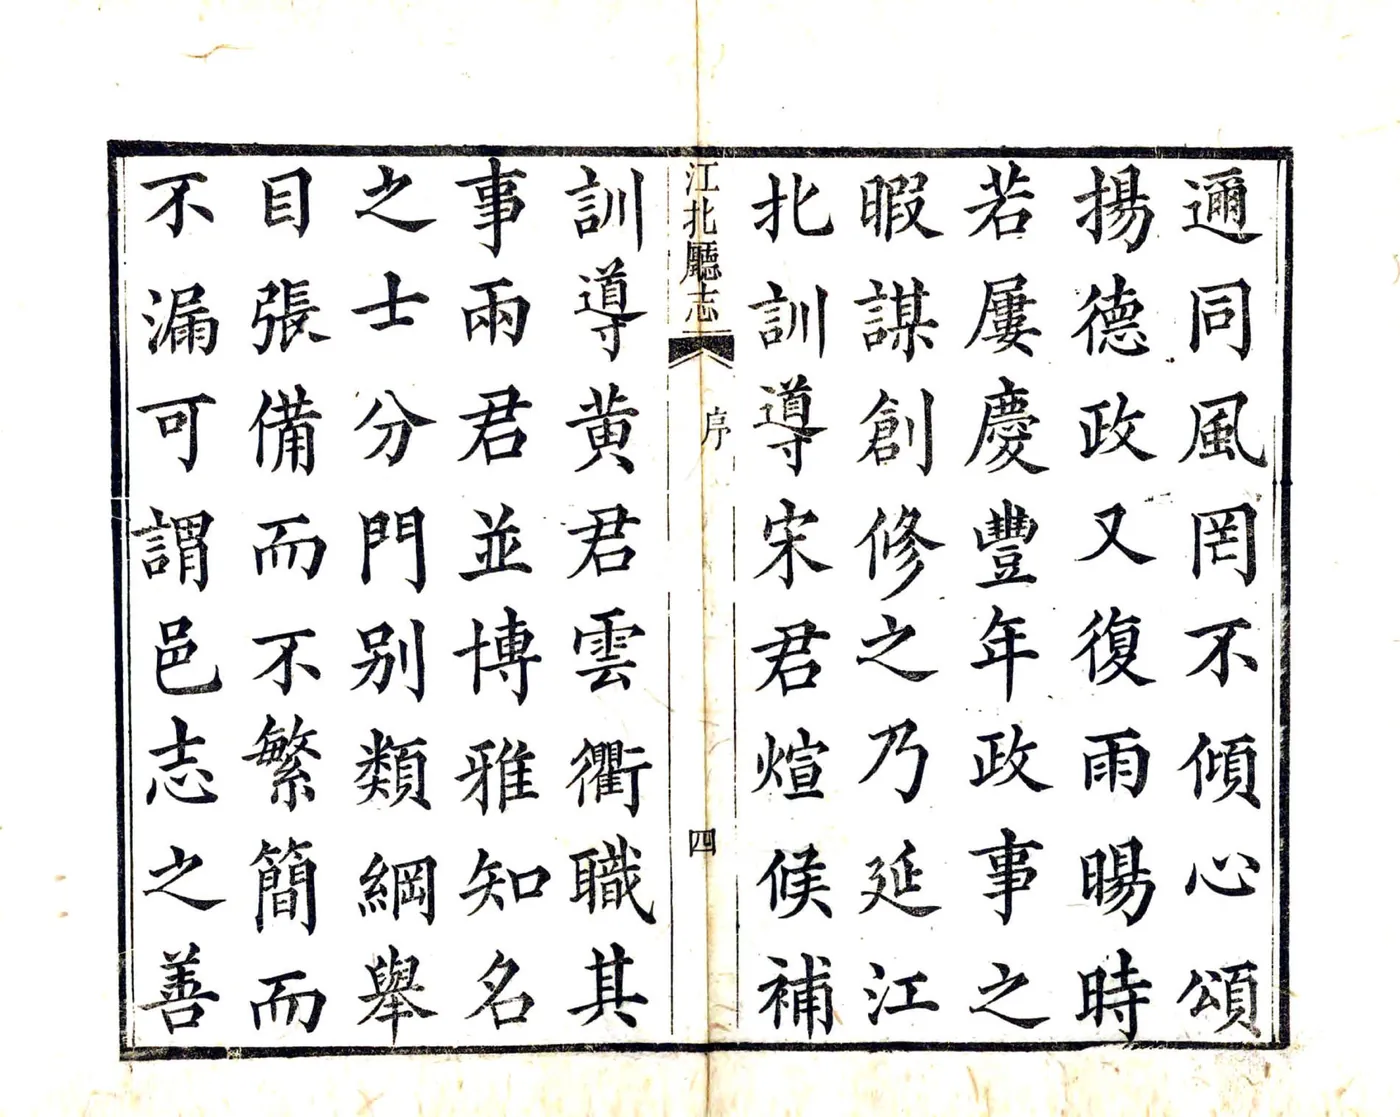 邇同風罔不傾心頌
揚德政又復雨暘時
若屢慶豐年政事之
暇謀創修之乃延江
北訓導宋君煊候補
江北廳志
序
四
訓導黃君雲衢職其
事兩君並博雅知名
之士分門别類綱舉
目張備而不繁簡而
不漏可謂邑志之善